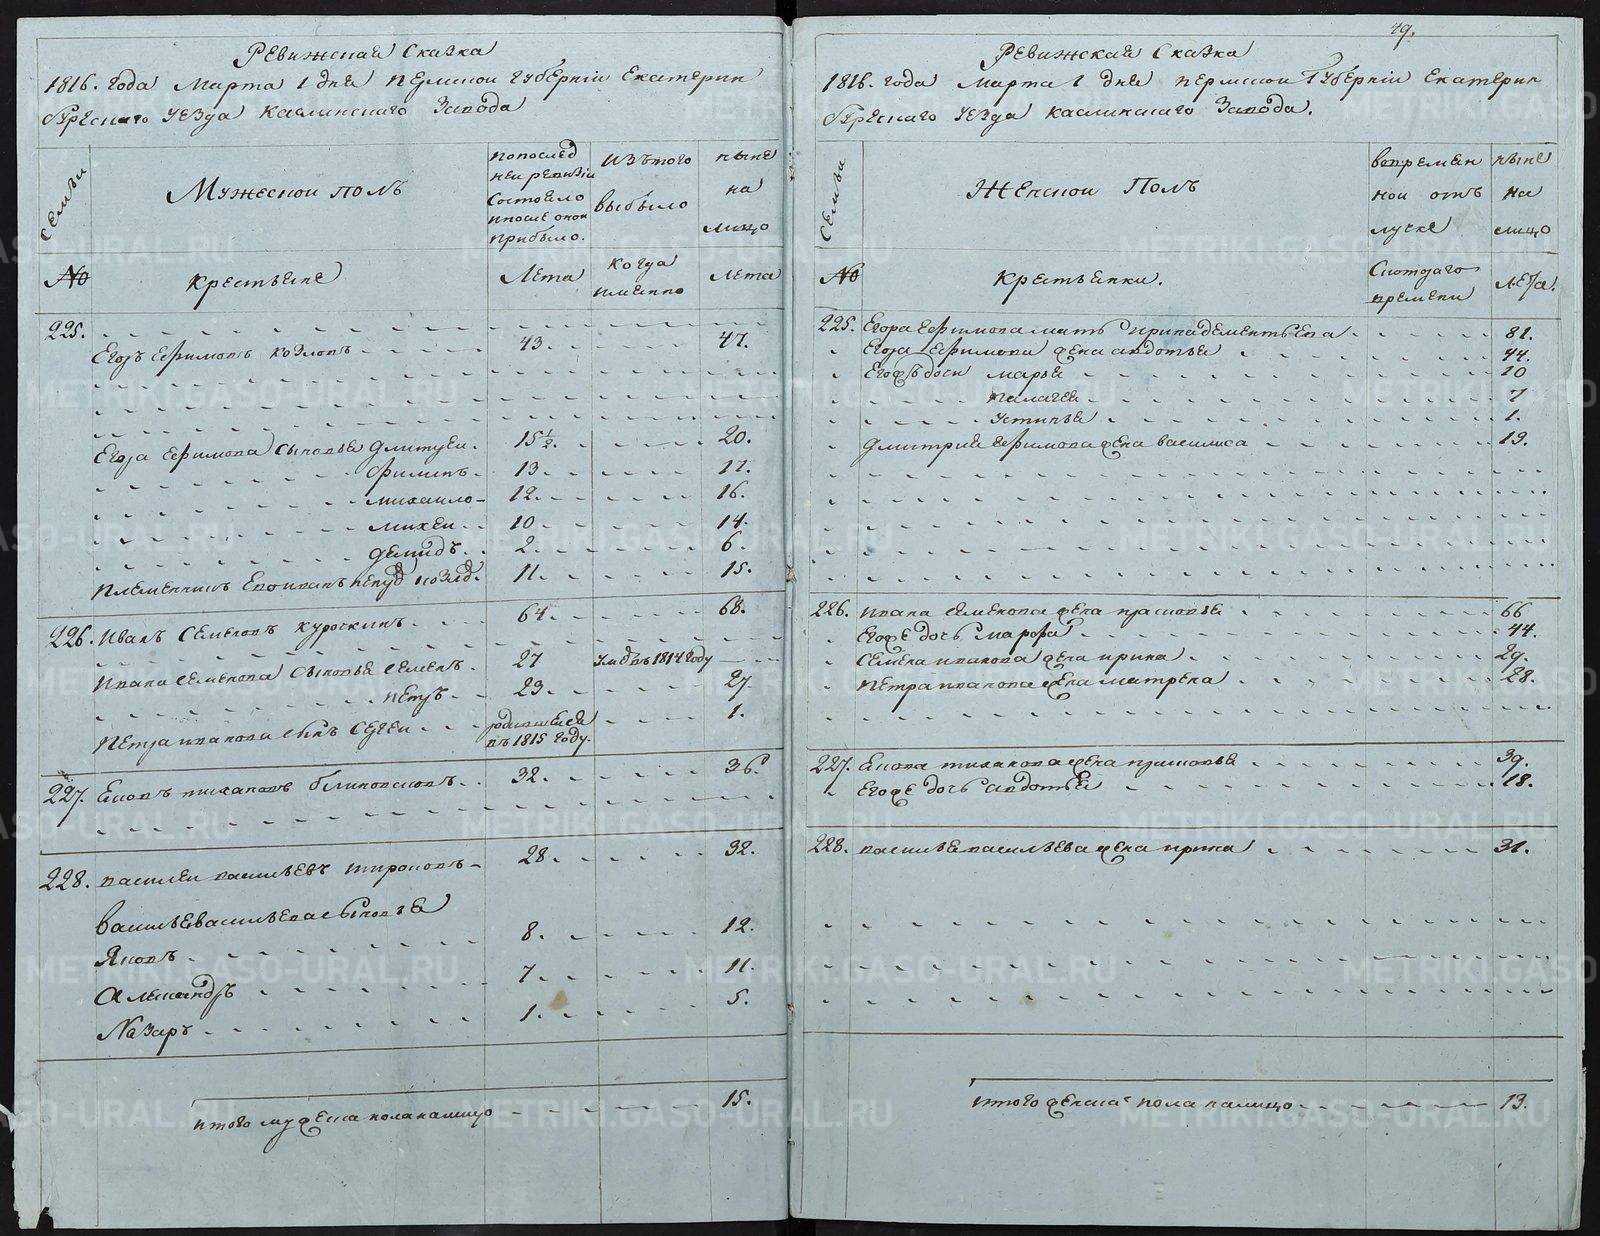 Ревижская Сказка
1816. года Марта 1 дня Пермской губернии Екатерин
бургскаго уезда Каслинскаго Завода
Семьи
Мужеской полъ
попослед
ней ревизии
состояло
ипосле оной
прибыло.
изътого
выбыло
ныне
на
лицо
№
крестьяне
Лета
когда
именно
Лета
225.
Егоръ Ефимовъ козловъ 43. 47.
Егора Ефимова сыновья Дмитреи. 15 1/2. 20.
Филипъ 13. 17.
михаило 12. 16.
михеи 10 14.
демидъ 2. 6.
Племенникъ 11. 15.
226. Иванъ Семеновъ курочкинъ 64. 68.
Ивана Семенова сыновья Семенъ. 27 умре въ 1814 году
петръ 23. 27.
Петра иванова сынъ Сергеи родившейся 1.
въ 1815 году.
227. Яковъ тихановъ блиновсковъ 32. 36.
228. василеи васильевъ широковъ 28. 32.
Василья васильева сыновья
Яковъ 8. 12.
Александръ 7. 11.
Назаръ 1. 5.
итого мужеска пола налицо 15.
49.
Ревижская Сказка
1816. года Марта 1 дня Пермской Губернии Екатерин
бургскаго уезда Каслинскаго Завода.
Семьи
Женской Полъ
вовремян
ной отъ
лучке
ныне
на
лицо
№
крестьянки.
Скотораго
времени
лета.
225. Егора Ефимова мать ирина дементьева 81.
Егора Ефимова жена авдотья 44.
Егоръ дочи марья 10
палагея 7
устинья 1.
Дмитрия Ефимова жена василиса 19.
226. Ивана Семенова жена прасковья 66
Егоже дочь марфа 44.
Семена иванова жена ирина 29.
Петра иванова жена матрена 28.
227. Якова тиханова жена прасковья 39.
Егоже дочь авдотья 18.
228. василья васильева жена ирина 31.
итого женска пола налицо 13.
METRIKI.GASO-URAL.RU